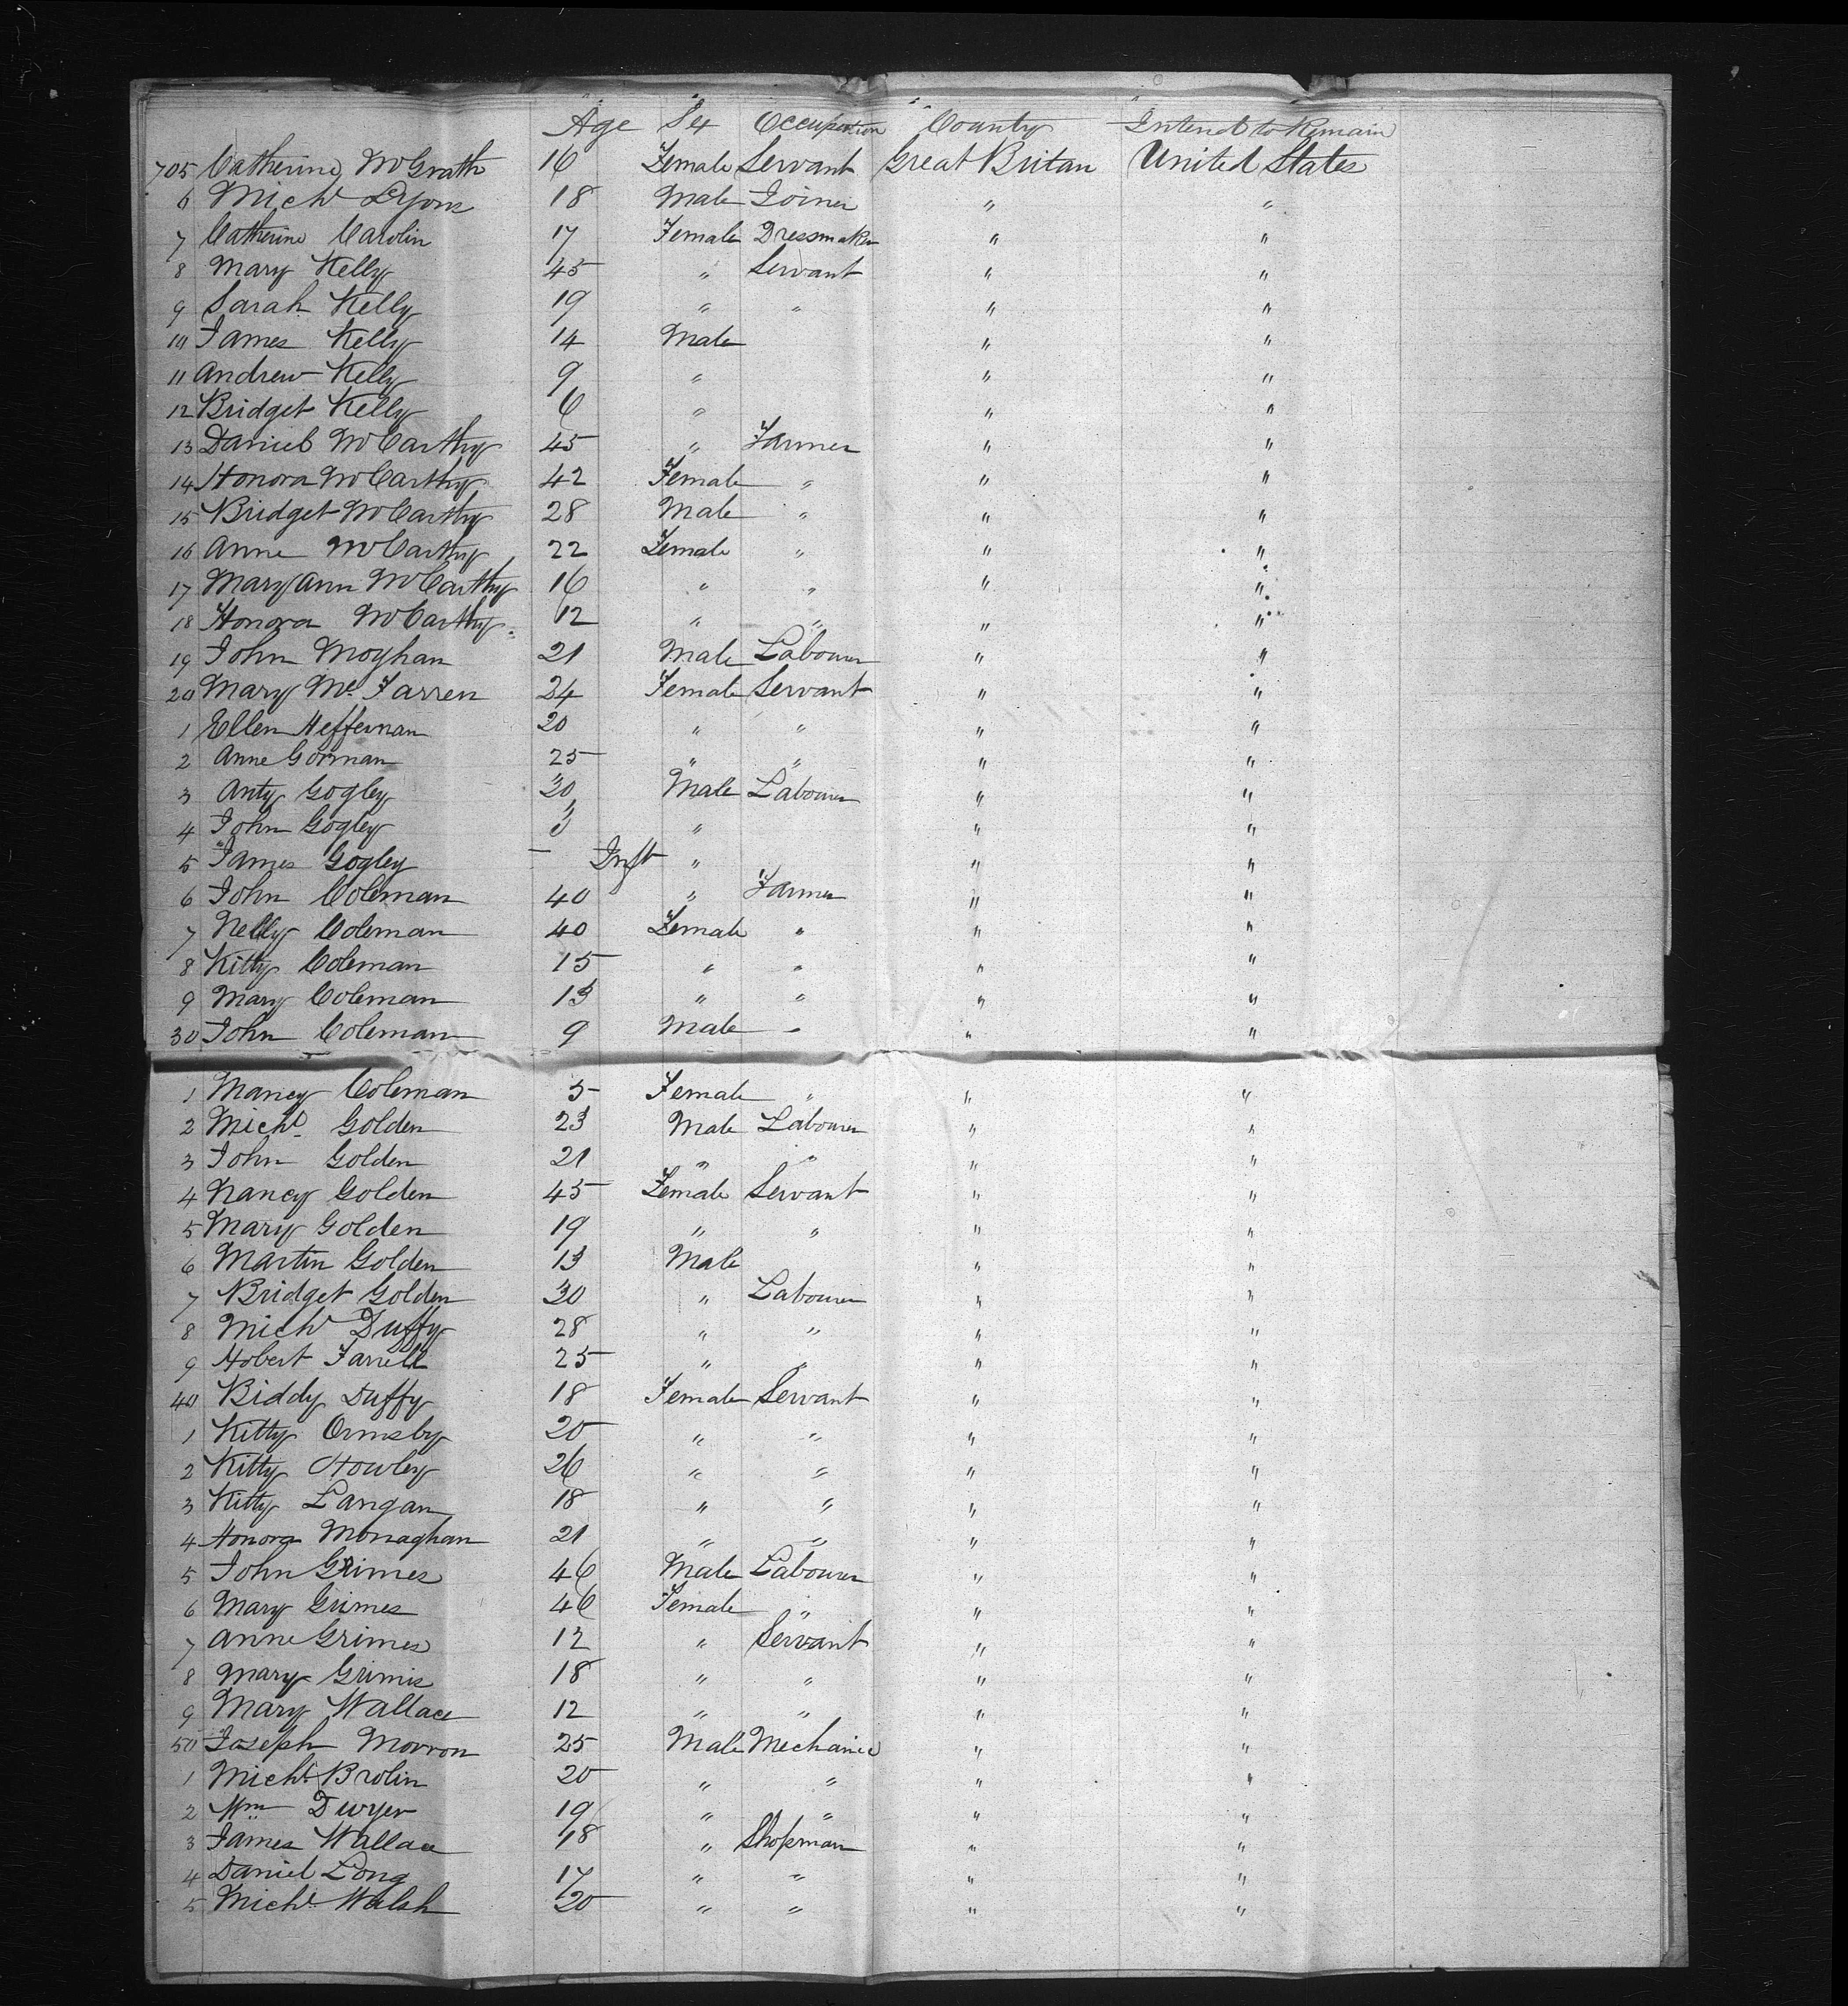 Age Sex Occupation County Intend to Remain
705 Catherine McGrath 16 Female Servant Great Britan United States
6 Michl Lyons 18 Male Joiner " "
7 Catherine Carolin 17 Female Dressmaker " "
8 Mary Kelly 45 " Servant " "
9 Sarah Kelly 19 " " " "
10 James Kelly 14 Male " "
11 Andrew Kelly 9 " " "
12 Bridget Kelly 6 " " "
13 Daniel McCarthy 45 " Farmer " "
14 Honora McCarthy 42 Female " " "
15 Bridget McCarthy 28 Male " " "
16 Anne McCarthy 22 Female " " "
17 Mary Ann McCarthy 16 " " " "
18 Honora McCarthy 12 " " " "
19 John Moghan 21 Male Labourer " "
20 Mary Mc Farren 24 Female Servant " "
1 Ellen Heffernan 20 " " " "
2 Anne Gorman 25 " " " "
3 Anty Gogley 30 Male Labourer " "
4 John Gogley 3 " " "
5 James Gogley – Inft " " "
6 John Coleman 40 " Farmer " "
7 Nelly Coleman 40 Female " " "
8 Kitty Coleman 15 " " " "
9 Mary Coleman 13 " " " "
30 John Coleman 9 Male " " "
1 Nancy Coleman 5 Female " " "
2 Michl Golden 23 Male Labourer " "
3 John Golden 21 " " " "
4 Nancy Golden 45 Female Servant " "
5 Mary Golden 19 " " " "
6 Martin Golden 13 Male " "
7 Bridget Golden 30 " Labourer " "
8 Michl Duffy 28 " " " "
9 Robert Farrell 25 " " " "
40 Biddy Duffy 18 Female Servant " "
1 Kitty Ormsby 20 " " " "
2 Kitty Howley 26 " " " "
3 Kitty Langan 18 " " " "
4 Honora Monaghan 21 " " " "
5 John Grimes 46 Male Labourer " "
6 Mary Grimes 46 Female " " "
7 Anne Grimes 12 " Servant " "
8 Mary Grimis 18 " " " "
9 Mary Wallace 12 " " " "
50 Joseph Morron 25 Male Mechanic " "
1 Michl Brolin 20 " " " "
2 Wm Dwyer 19 " " " "
3 James Wallace 18 " Shopman " "
4 Daniel Long 17 " " " "
5 Michl Walsh 20 " " " "